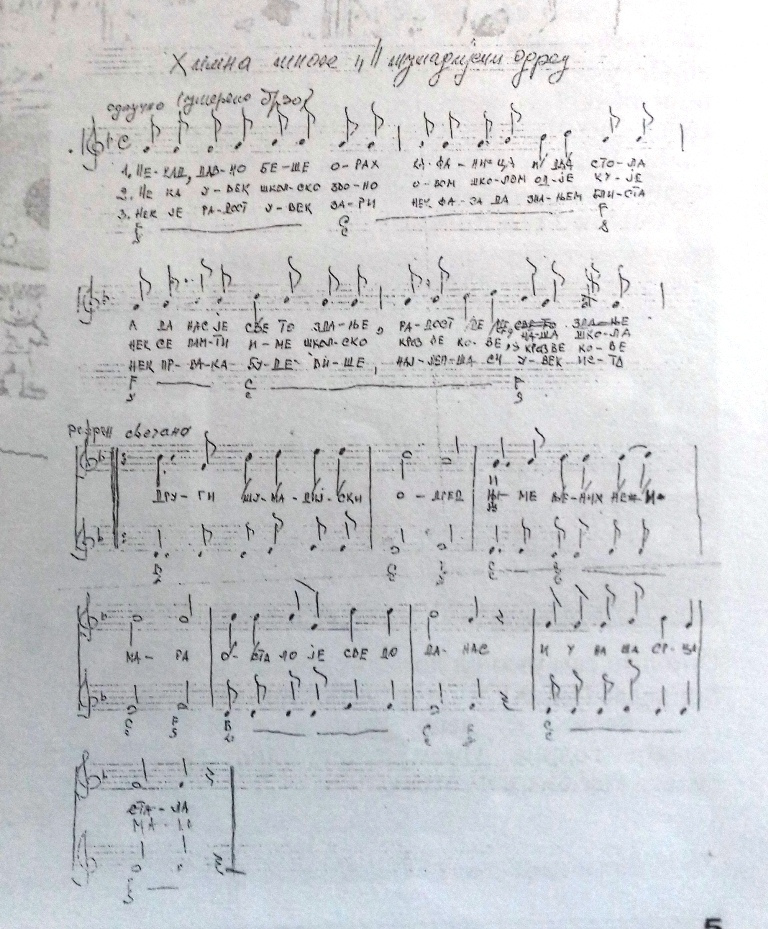 Химна школе „II шумадијски одред
одлучно (умерено брзо)
1. НЕ-КАД, ДАВ-НО БЕ-ШЕ О-РАХ КА-ФА-НИ-ЦА И ДВА СТО-ЛА
2. НЕ КА У-ВЕК ШКОЛ-СКО ЗВО-НО О-ВОМ ШКО-ЛОМ ОД-ЈЕ КУ-ЈЕ
3. НЕК ЈЕ РА-ДОСТ У-ВЕК ЗА-РИ НЕК ФА-ЗА ДА ЗНА-ЊЕМ БЛИ-СТА
F C F
А ДА НАС ЈЕ СВЕ ТО ЗДА-ЊЕ, РА-ДОСТ ДЕ НАША ШКО-ЛА
НЕК СЕ ПАМ-ТИ И-МЕ ШКОЛ-СКО КРОЗ ВЕ КО-ВЕ, КРОЗ ВЕ КО-ВЕ
НЕК ПР-ВА-КА БУ-ДЕ ВИ-ШЕ, НАЈ-ЛЕП-ША СИ У-ВЕК ИС-ТА
F C F
рефрен свечано
ДРУ-ГИ ШУ-МА-ДИЈ-СКИ О-ДРЕД И-МЕ ЊЕ-НИХ НЕ-И-
МА-РА О-СТА ЛО ЈЕ СВЕ ДО ДА-НАС И У НА ША СР-ЦА
СТА-ЛА
5